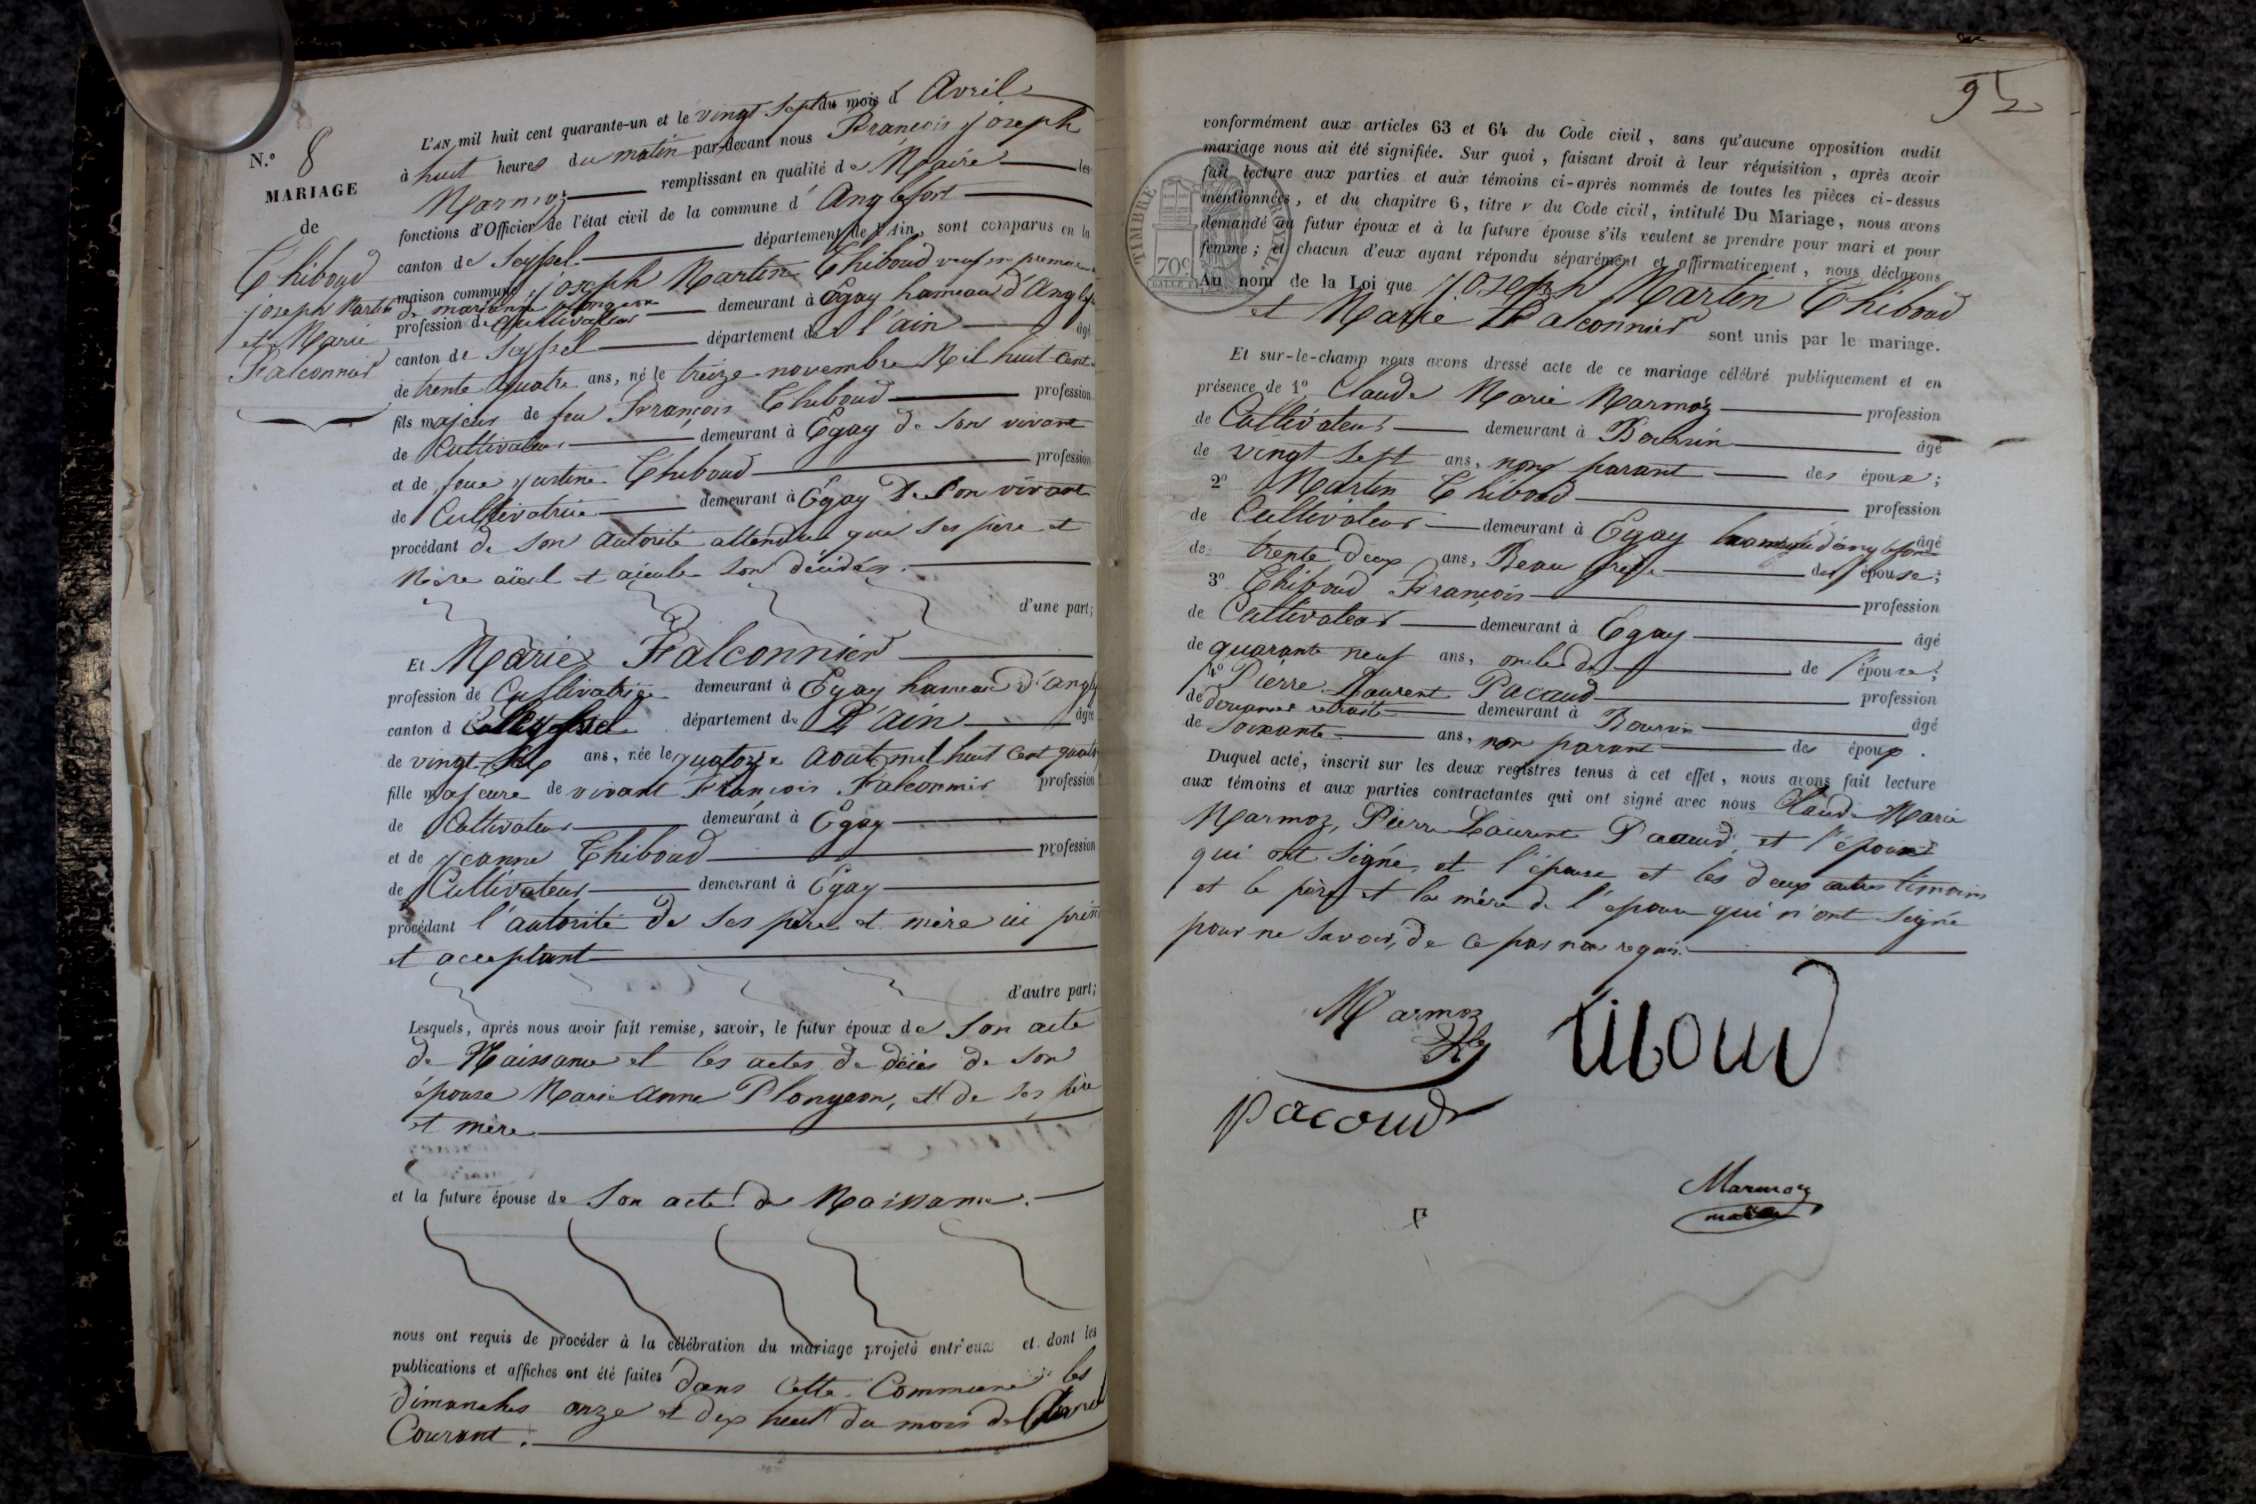 N.° 8
MARIAGE
de
Thiboud
joseph Martin
et Marie
Falconnier
L'AN mil huit cent quarante-un et le vingt Sept du mois d'Avril
à huit heures du matin par-devant nous François joseph
Marmoz remplissant en qualité de Maire les
fonctions d'Officier de l'état civil de la commune d'Anglefort
canton de Seyssel département de l'Ain, sont comparus en la
maison commune joseph Martin Thiboud veuf en premiere
de marianne plongeon
profession de Cultivateur demeurant à Egay hameau d'Anglef
canton de Seyssel département de l'ain âgé
de trente quatre ans, né le treize novembre Mil huit Cent
fils majeur de feu François Thiboud profession
de Cultivateur demeurant à Egay de Son vivant
et de feue justine Thiboud profession
de Cultivatrice demeurant à Egay De Son vivant
procédant de son autorité attendu que ses père et
Mère aïeul et aïeule Son décédés.
d'une part;
Et Marie Falconnier
profession de Cultivatrice demeurant à Egay hameau d'angl
canton d Seyssel département de L'ain âgée
de vingt ans, née le quatorze Aout mil huit Cent quato
fille majeure de vivant François Falconnier profession
de Cultivateur demeurant à Egay
et de jeanne Thiboud profession
de Cultivateur demeurant à Egay
procédant l'autorité de ses père et mère ici prés
et acceptant
d'autre part;
Lesquels, après nous avoir fait remise, savoir, le futur époux de Son acte
de Naissance et les actes de décès de son
épouse Marie Anne Plongeon, et de ses père
et mère
et la future épouse de Son acte de Naissance.
nous ont requis de procéder à la célébration du mariage projeté entr'eux et dont les
publications et affiches ont été faites dans Cette Commune les
dimanches onze et dix huit du mois de Avril
Courant.
95
conformément aux articles 63 et 64 du Code civil, sans qu'aucune opposition audit
mariage nous ait été signifiée. Sur quoi, faisant droit à leur réquisition, après avoir
fait lecture aux parties et aux témoins ci-après nommés de toutes les pièces ci-dessus
mentionnées, et du chapitre 6, titre V du Code civil, intitulé Du Mariage, nous avons
demandé au futur époux et à la future épouse s'ils veulent se prendre pour mari et pour
femme; et chacun d'eux ayant répondu séparément et affirmativement, nous déclarons
TIMBRE ROYAL.
70c
Au nom de la Loi que joseph Martin Thiboud
et Marie Falconnier sont unis par le mariage.
Et sur-le-champ nous avons dressé acte de ce mariage célébré publiquement et en
présence de 1° Claude Marie Marmoz profession
de Cultivateur demeurant à Boursin âgé
de vingt Sept ans, non parant des époux;
2° Martin Thiboud profession
de Cultivateur demeurant à Egay hameau d'anglefort âgé
de trente deux ans, Beau frère de l'épouse;
3° Thiboud François profession
de Cultivateur demeurant à Egay âgé
de quarante neuf ans, oncle de l'épouse;
4° Pierre Laurent Pacaud profession
de douanes retraité demeurant à Boursin âgé
de Soixante ans, non parant des époux.
Duquel acte, inscrit sur les deux registres tenus à cet effet, nous avons fait lecture
aux témoins et aux parties contractantes qui ont signé avec nous Claude Marie
Marmoz, Pierre Laurent Pacaud, et l'époux
qui ont signé, et l'épouse et les deux autres témoins
et le père et la mère de l'épouse qui n'ont signé
pour ne savoir, de ce par nous requis.
Marmoz
tiboud
pacoud
Marmoz
maire